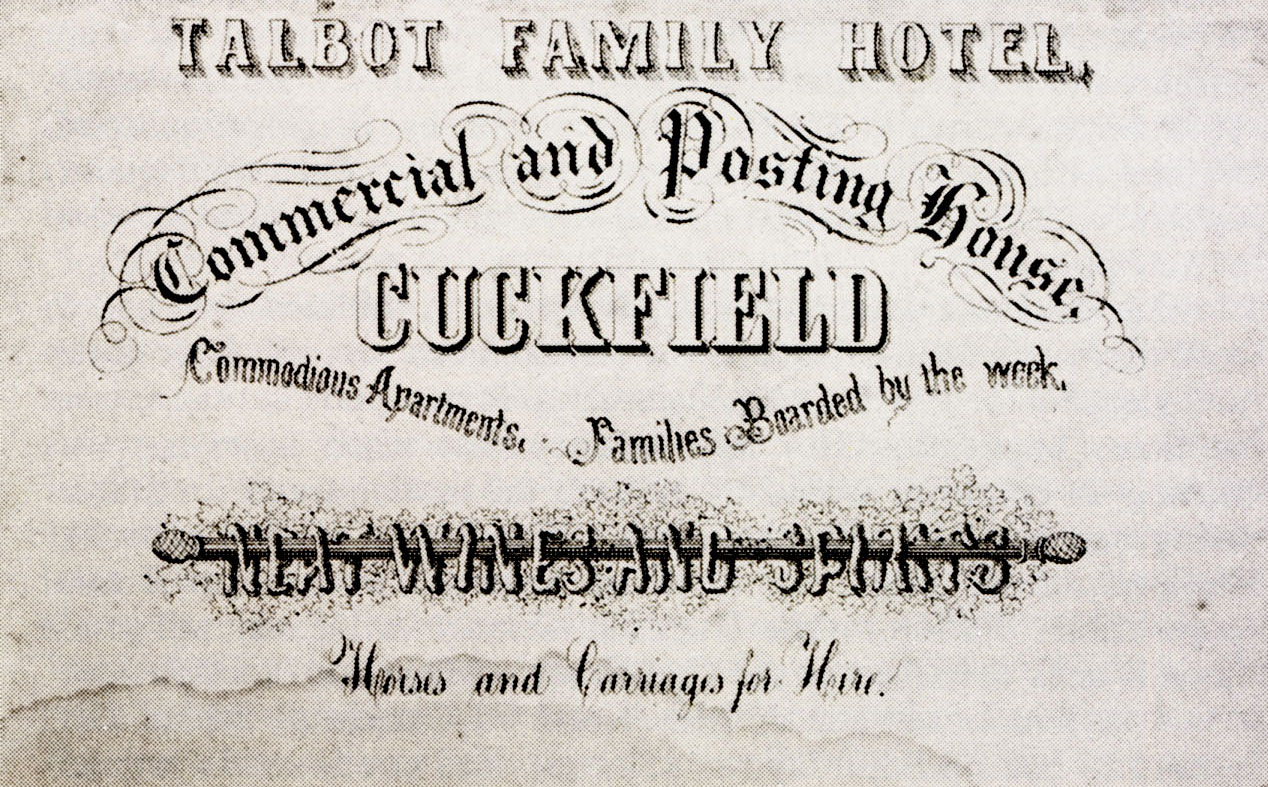 TALBOT FAMILY HOTEL,
Commercial and Posting House,
CUCKFIELD
Commodious Apartments, Families Boarded by the week,
NEAT WINES AND SPIRITS
Horses and Carriages for Hire.